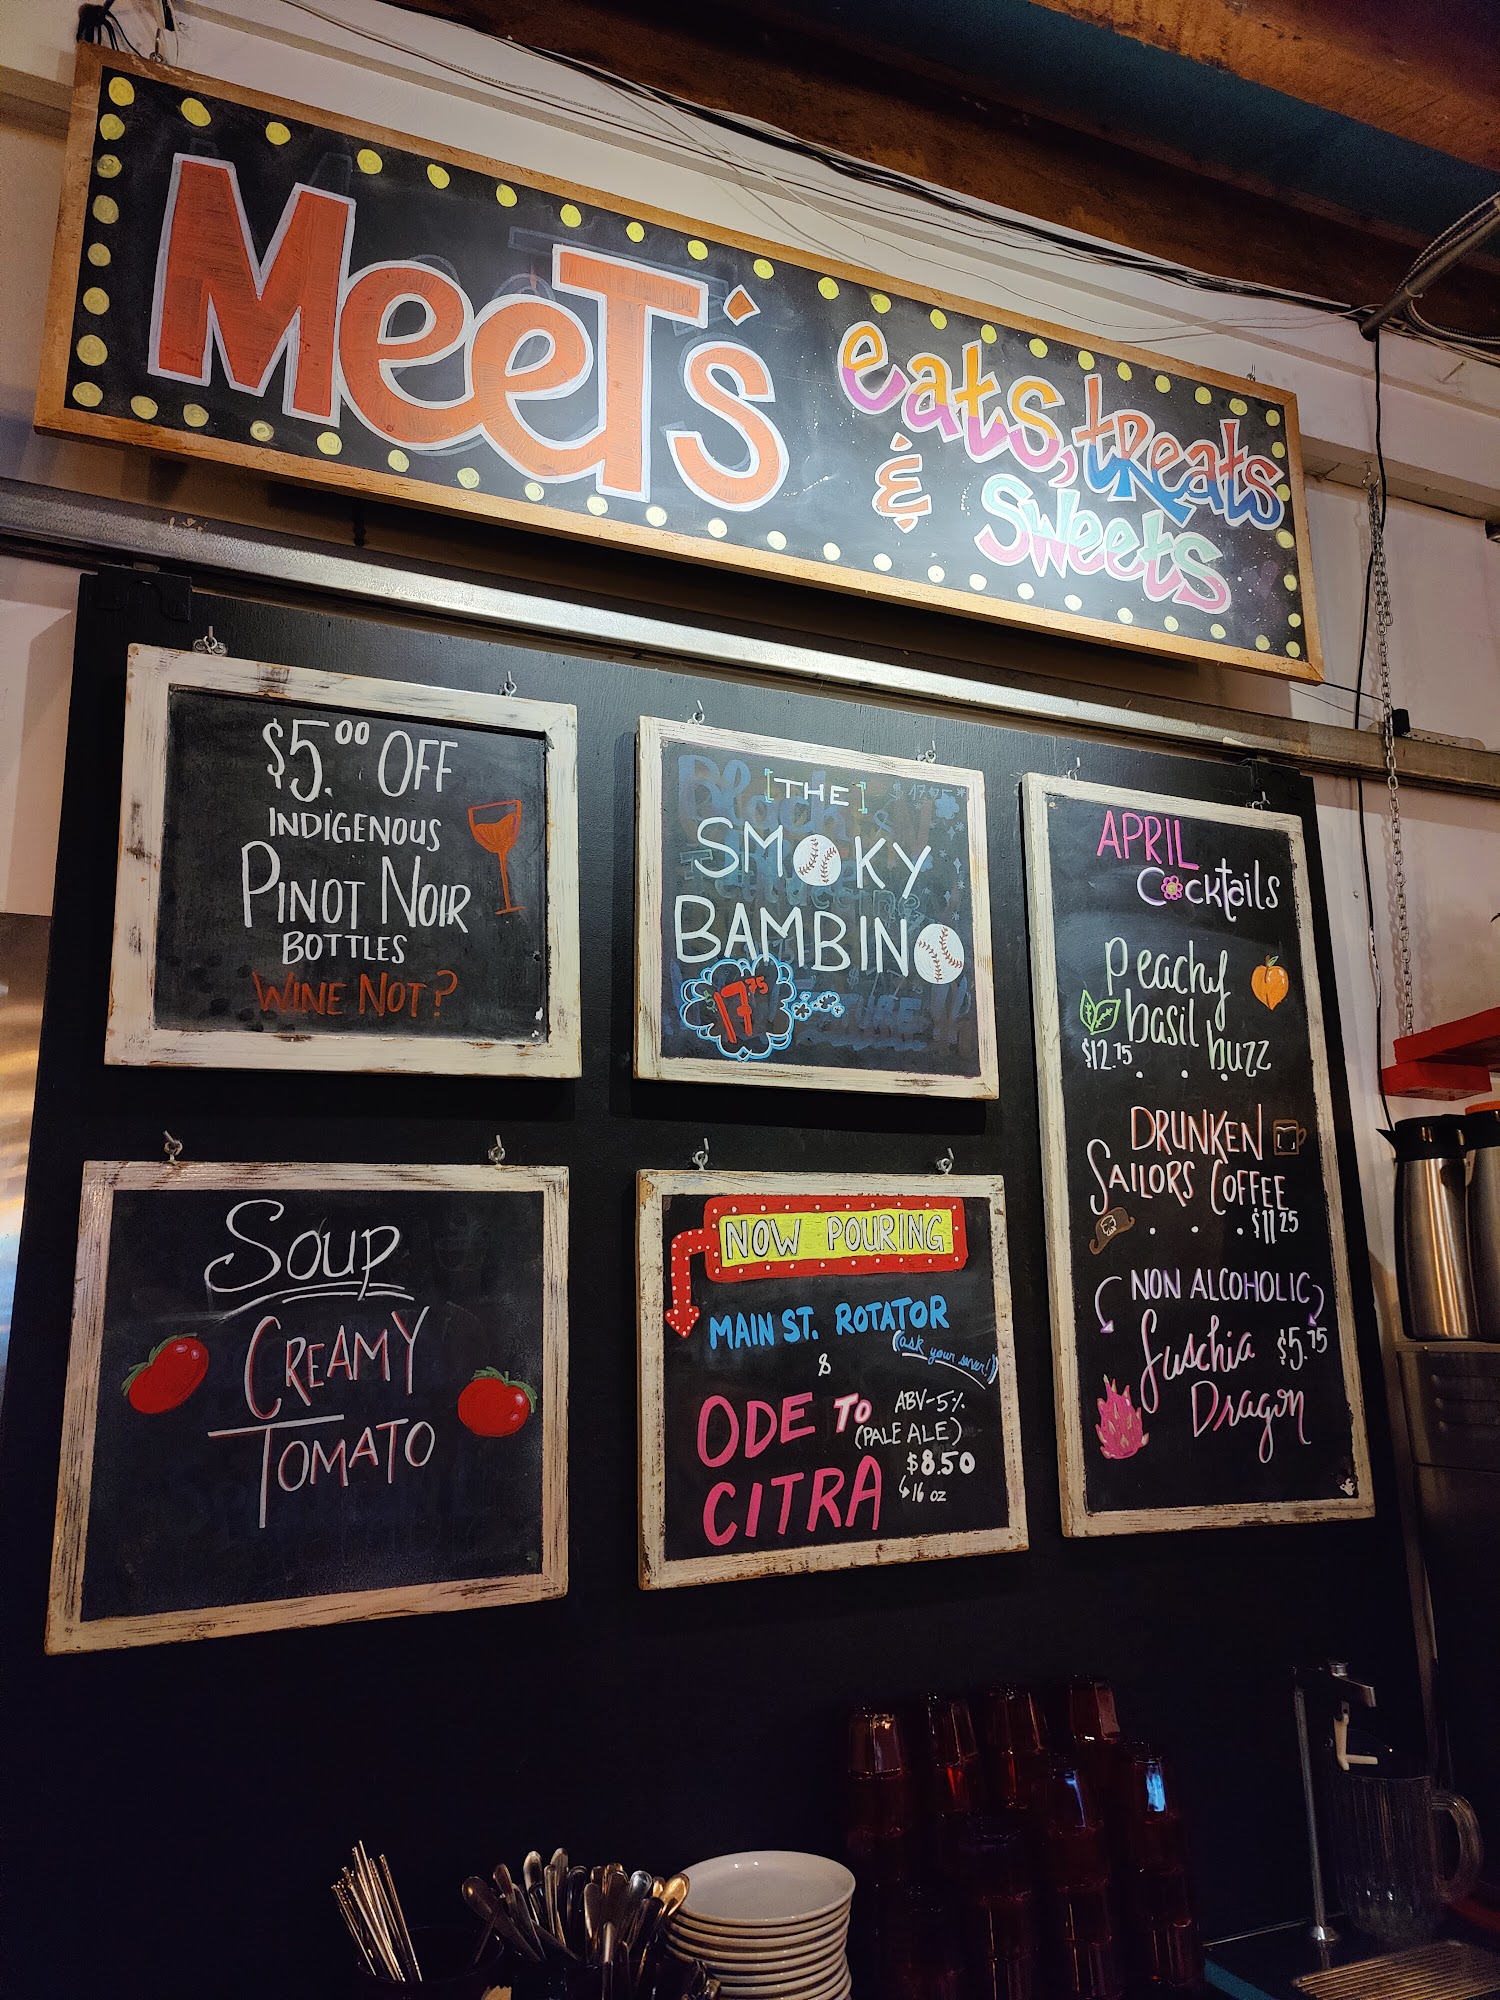 MeeT's
eats, treats
& sweets
$5.00 OFF
INDIGENOUS
PINOT NOIR
BOTTLES
WINE NOT?
[THE]
SMOKY
BAMBINO
$17.75
SOUP
CREAMY
TOMATO
NOW POURING
MAIN ST. ROTATOR
(ask your server!)
&
ODE TO
CITRA
ABV-5%
(PALE ALE)
$8.50
↳16 OZ
APRIL
Cocktails
Peachy
basil buzz
$12.75
DRUNKEN
SAILORS COFFEE
$11.25
NON ALCOHOLIC
fuschia $5.75
Dragon